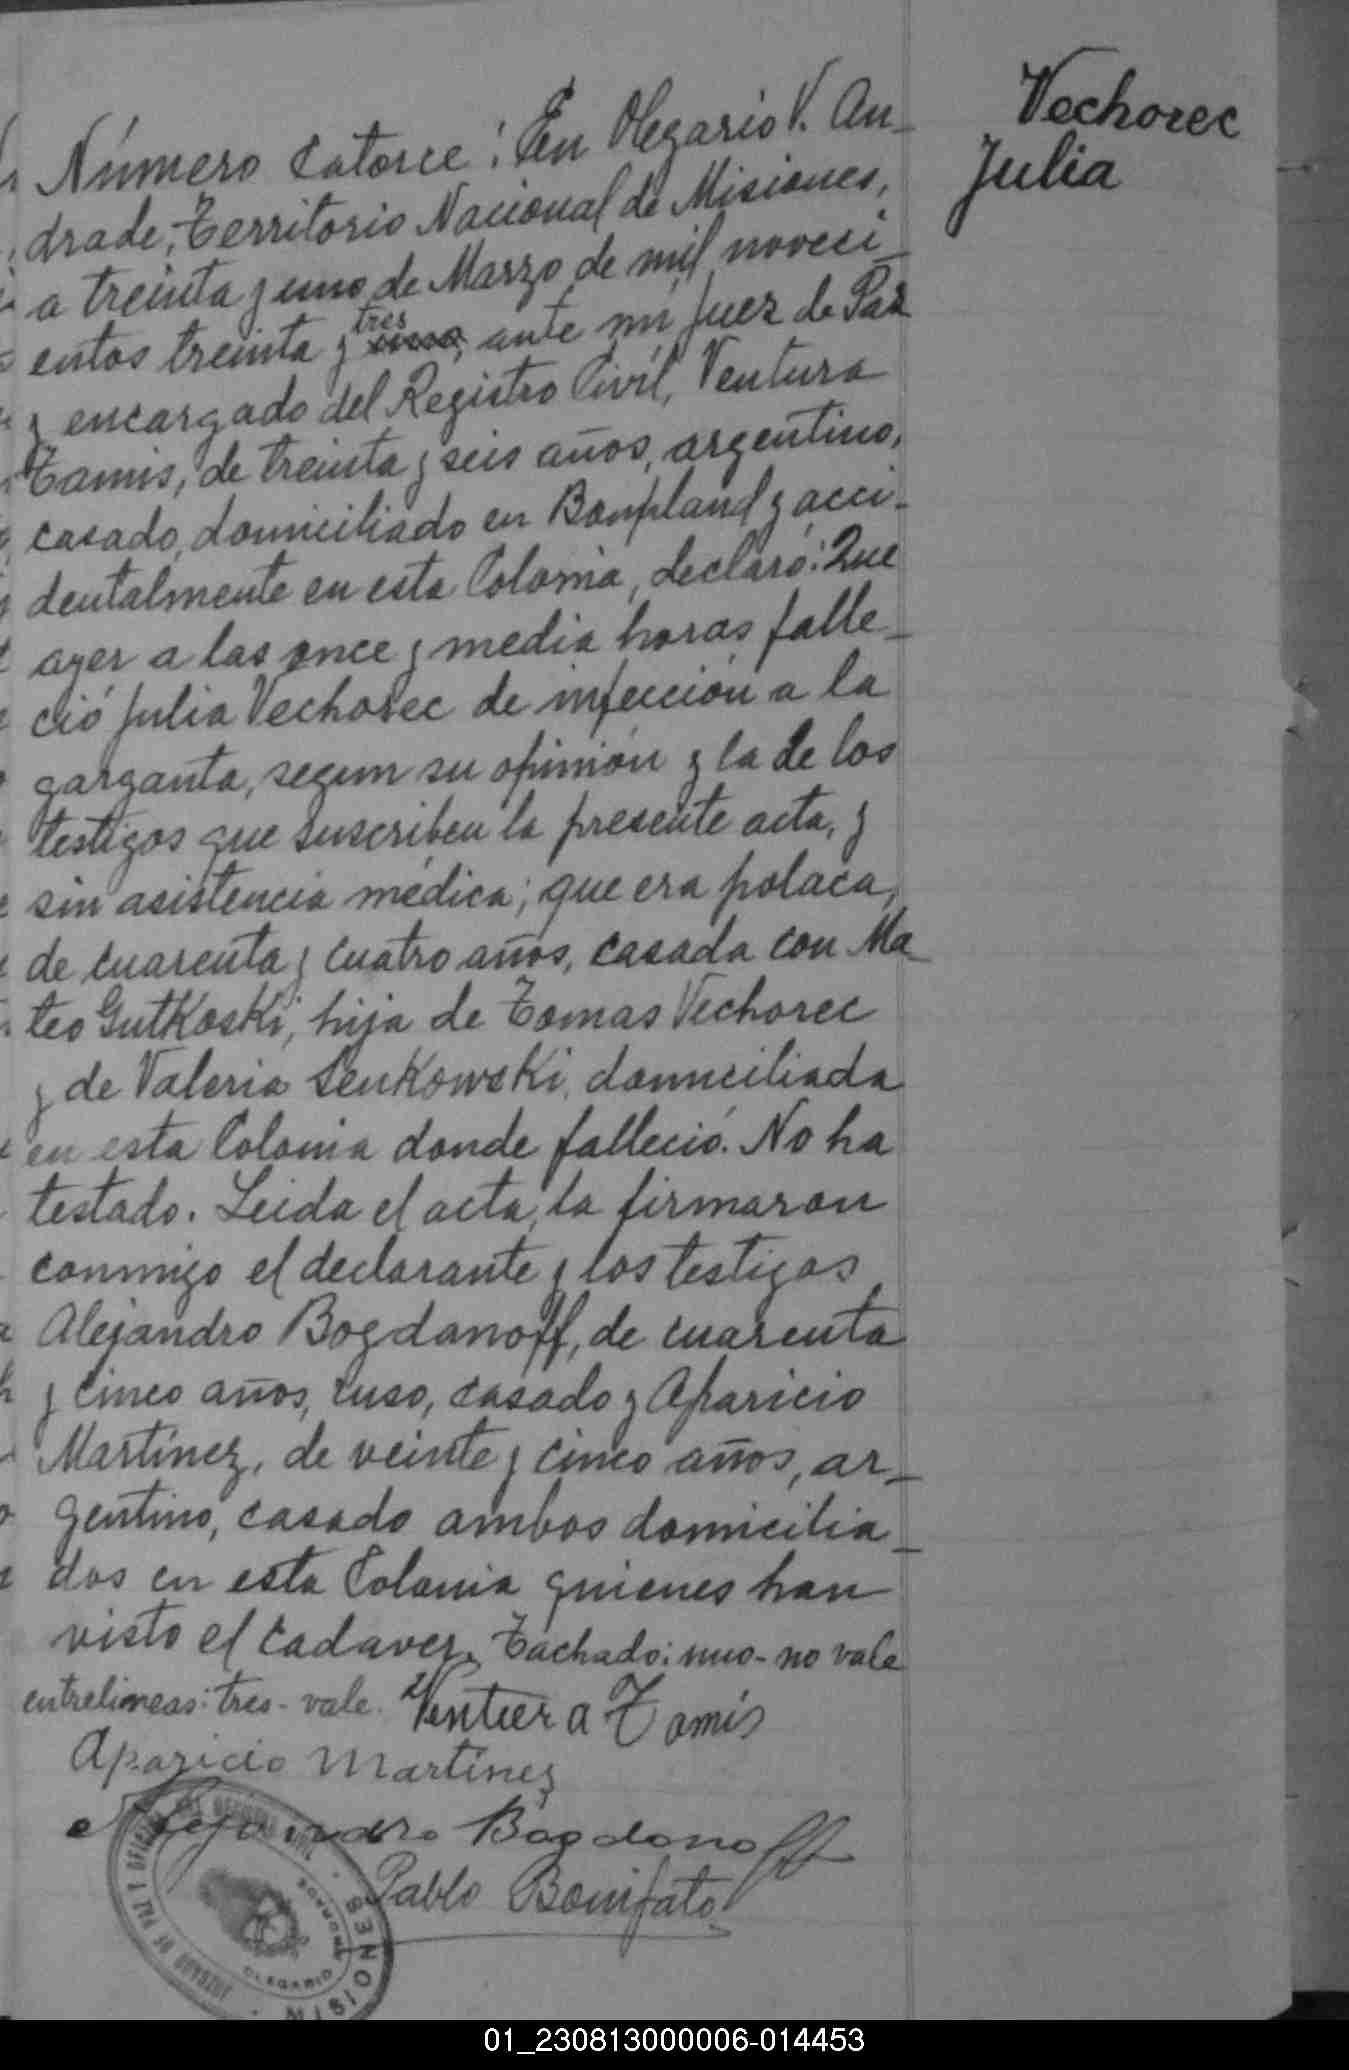 Vechorec
Julia
Número catorce: En Olegario V. An-
drade, Territorio Nacional de Misiones,
a treinta y uno de Marzo de mil noveci-
entos treinta y uno, tres ante mi Juez de Paz
y encargado del Registro Civil, Ventura
Tamis, de treinta y seis años, argentino,
casado, domiciliado en Bonpland y acci-
dentalmente en esta Colonia, declaró: Que
ayer a las once y media horas falle-
ció Julia Vechorec de infección a la
garganta, segun su opinión y la de los
testigos que suscriben la presente acta, y
sin asistencia médica; que era polaca,
de cuarenta y cuatro años, casada con Ma-
teo Gutkoski, hija de Tomas Vechorec
y de Valeria Senkowski, domiciliada
en esta Colonia donde falleció. No ha
testado. Leida el acta, la firmaron
conmigo el declarante y los testigos
Alejandro Bogdanoff, de cuarenta
y cinco años, ruso, casado y Aparicio
Martínez, de veinte y cinco años, ar-
gentino, casado ambos domicilia-
dos en esta Colonia quienes han
visto el cadaver. Tachado: uno - no vale
entrelineas: tres - vale. Ventura Tamis
Aparicio Martinez
Alejandro Bogdanoff
Pablo Bonifato
JUZGADO DE PAZ Y OFICINA DEL REGISTRO CIVIL
OLEGARIO
MISIONES
01_230813000006-014453